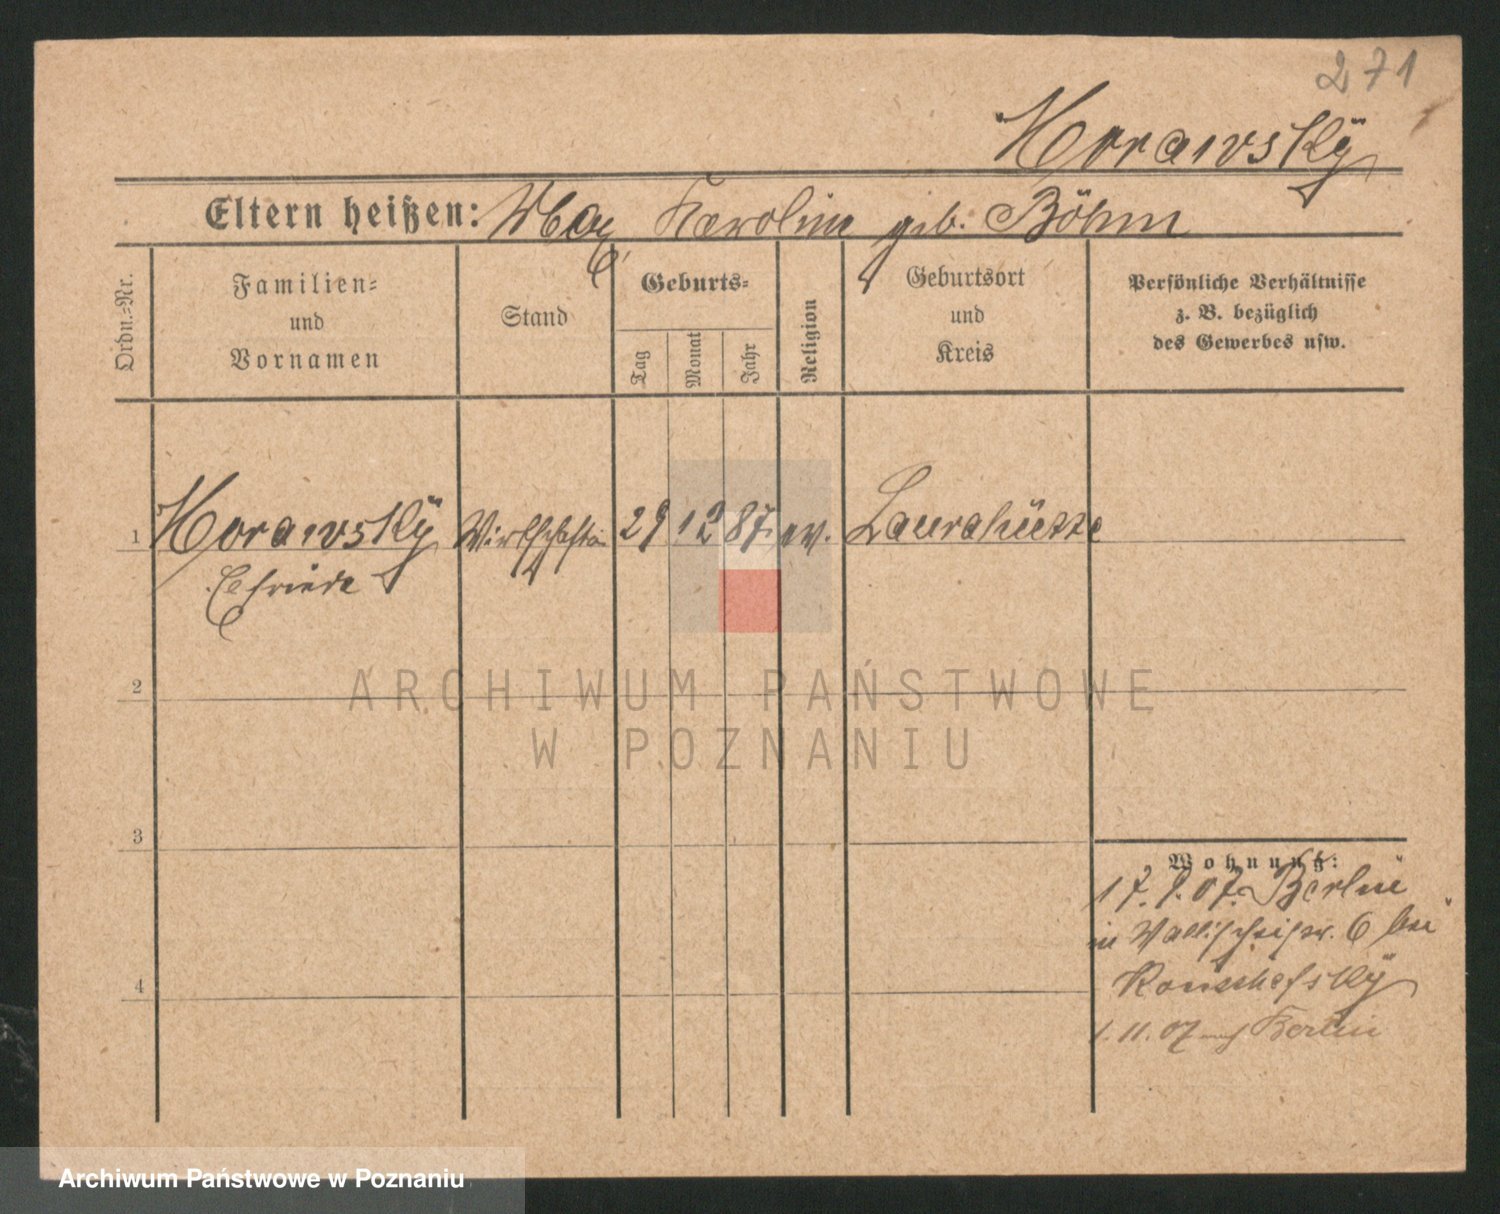 271
Morawsky
Eltern heißen: Max Karoline geb. Böhm
Ordn.=Nr.
Familien=
und
Vornamen
Stand
Geburts=
Tag
Monat
Jahr
Religion
Geburtsort
und
Kreis
Persönliche Verhältnisse
z. B. bezüglich
des Gewerbes usw.
1 Morawsky 29 12 87. ev. Laurahütte
Elfriede
ARCHIWUM PAŃSTWOWE
W POZNANIU
2
3
4
Wohnung:
17. 9. 07. Berlin
in 6 bei
1. 11. 07 nach Berlin
Archiwum Państwowe w Poznaniu